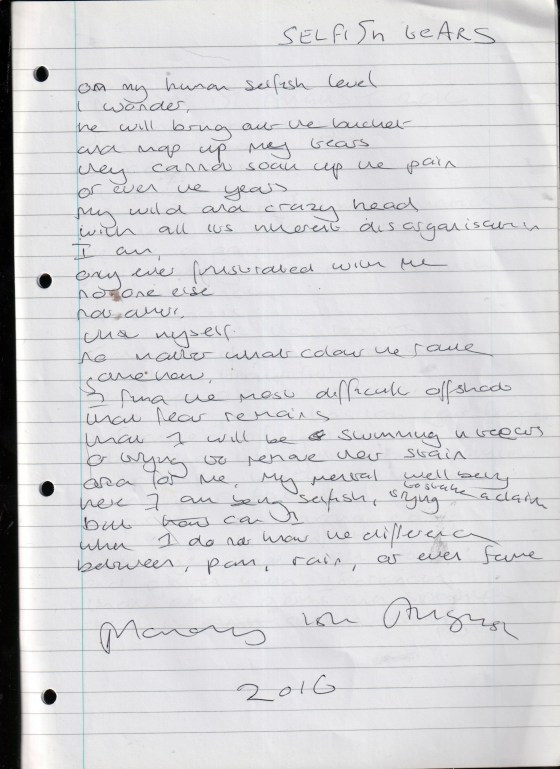 SELFISH TEARS
on my human selfish level
I wonder,
he will bring out the bucket
and mop up my tears
they cannot soak up the pain
or even the years
My wild and crazy head
with all its inherent disorganisation
I am,
only ever frustrated with me
no one else
not
myself.
no matter what colour the
somehow,
I find the most difficult offshoot
that fear remains
that I will be swimming in tears
or trying to remove their stain
and for me, my mental well being
here I am being selfish, trying to stake a claim
but how can I
when I do not know the difference
between, pain, rain, or even fame
Monday August
2016